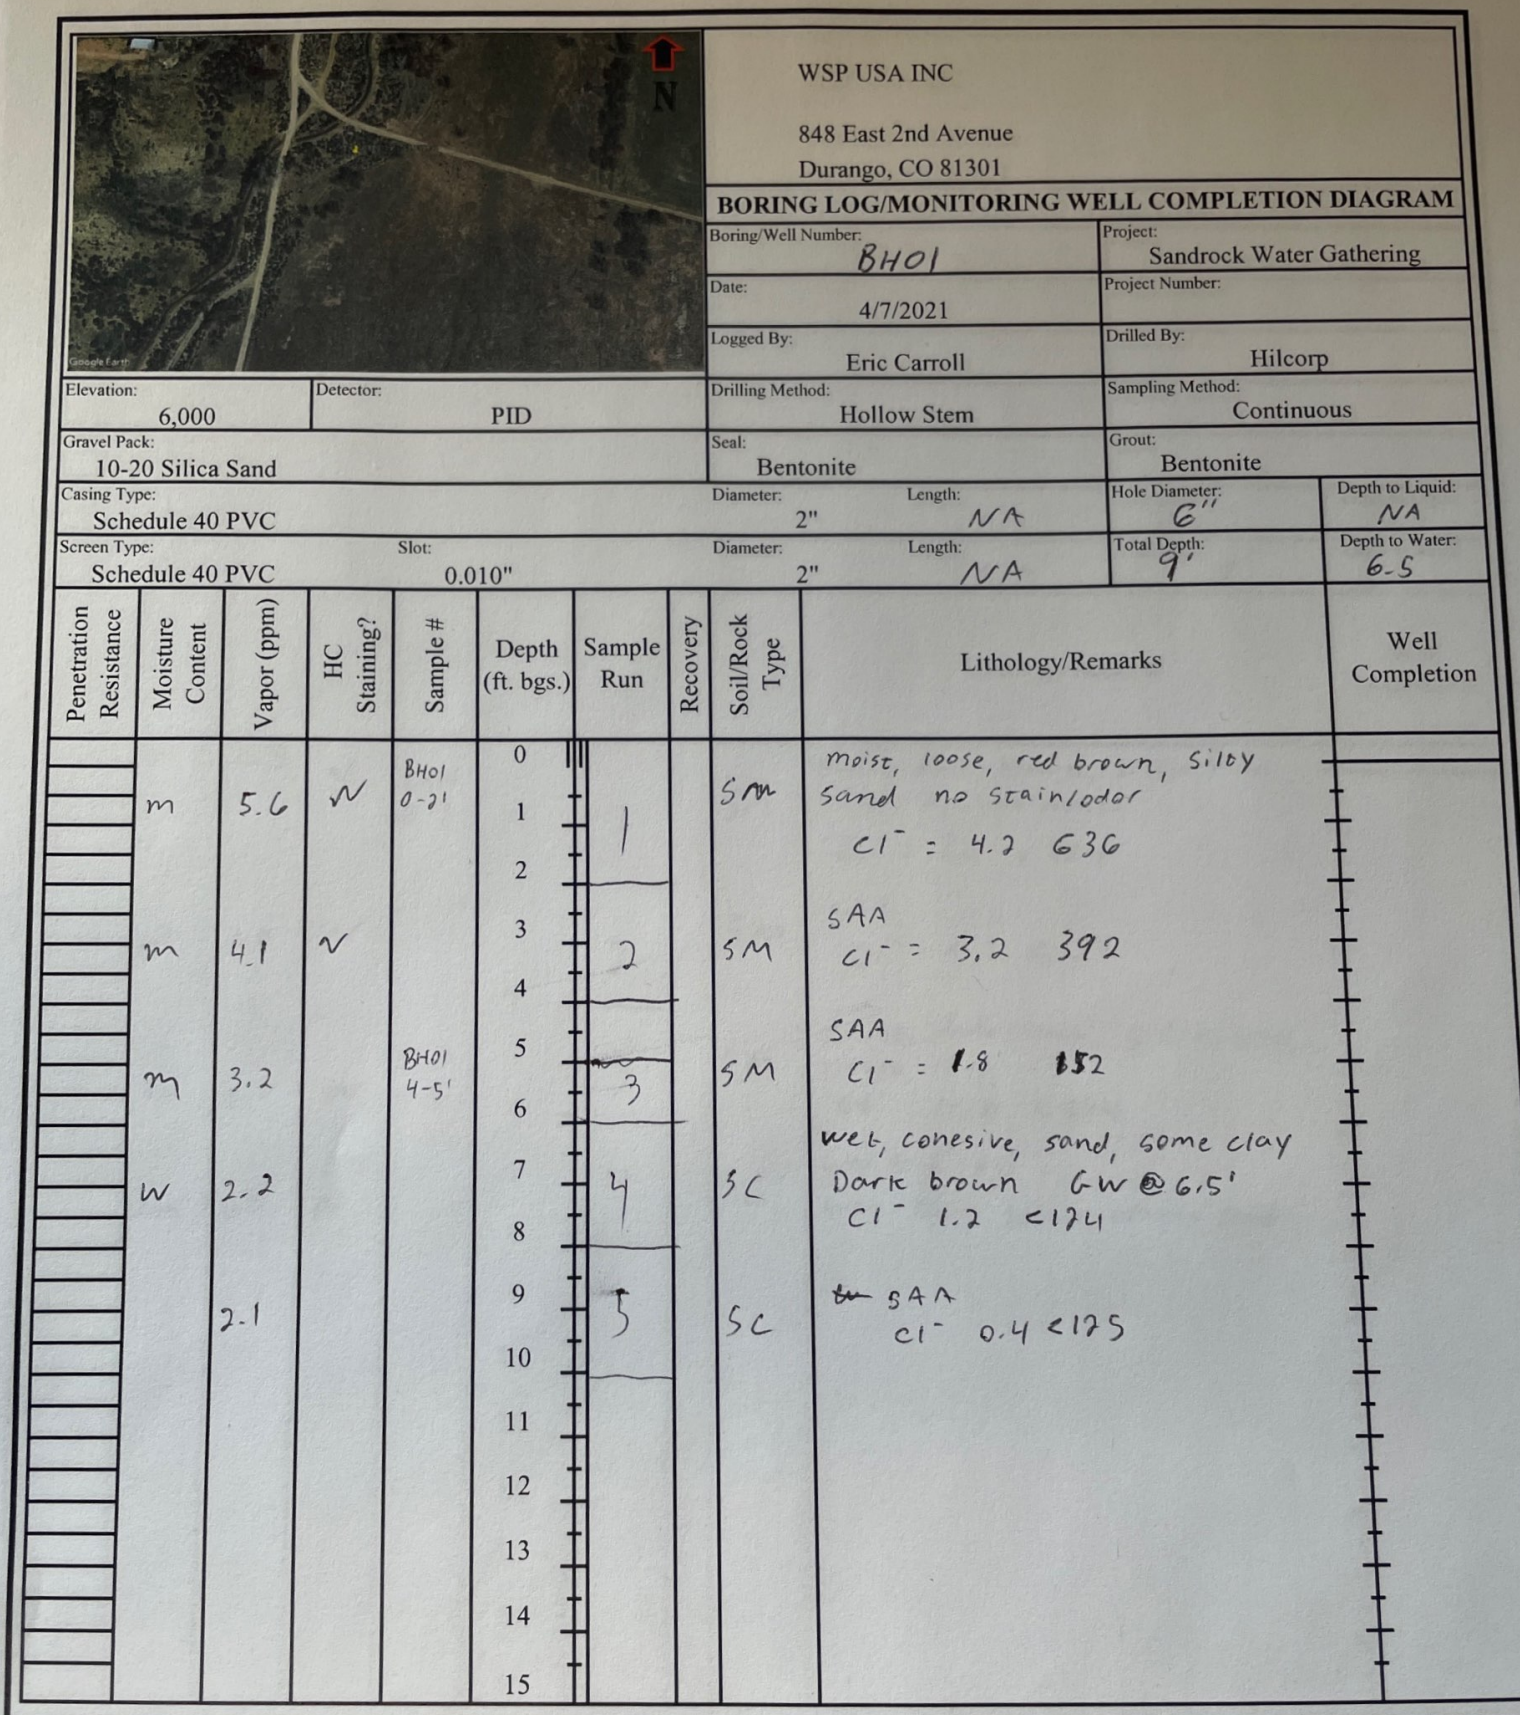 N
Google Earth
WSP USA INC
848 East 2nd Avenue
Durango, CO 81301
BORING LOG/MONITORING WELL COMPLETION DIAGRAM
Boring/Well Number: BH01
Project: Sandrock Water Gathering
Date: 4/7/2021
Project Number:
Logged By: Eric Carroll
Drilled By: Hilcorp
Elevation: 6,000
Detector: PID
Drilling Method: Hollow Stem
Sampling Method: Continuous
Gravel Pack: 10-20 Silica Sand
Seal: Bentonite
Grout: Bentonite
Casing Type: Schedule 40 PVC
Diameter: 2"
Length: NA
Hole Diameter: 6"
Depth to Liquid: NA
Screen Type: Schedule 40 PVC
Slot: 0.010"
Diameter: 2"
Length: NA
Total Depth: 9'
Depth to Water: 6.5
Penetration Resistance
Moisture Content
Vapor (ppm)
HC Staining?
Sample #
Depth (ft. bgs.)
Sample Run
Recovery
Soil/Rock Type
Lithology/Remarks
Well Completion
0
moist, loose, red brown, silty
m 5.6 N BH01 0-2' 1 1 SM sand no stain/odor
Cl⁻ = 4.2 636
2
SAA
3
m 4.1 N 2 SM Cl⁻ = 3.2 392
4
SAA
5
m 3.2 BH01 4-5' 3 SM Cl⁻ = 1.8 152
6
wet, cohesive, sand, some clay
7
w 2.2 4 SC Dark brown GW @ 6.5'
Cl⁻ 1.2 <124
8
9
SAA
2.1 5 SC Cl⁻ 0.4 <125
10
11
12
13
14
15